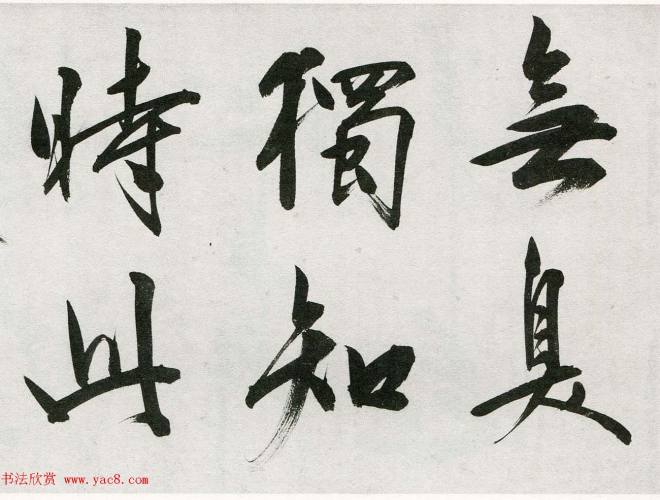 無臭
獨知
時此
书法欣赏 www.yac8.com